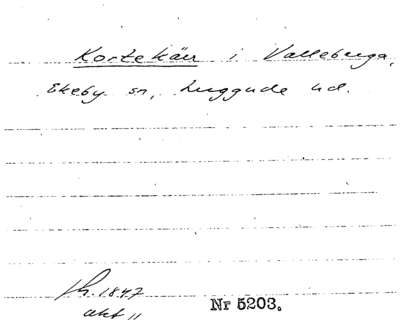 Kortekärr i Valleberga,
Ekeby sn, Luggude hd.
sk. 1847
akt 11
Nr 5203.